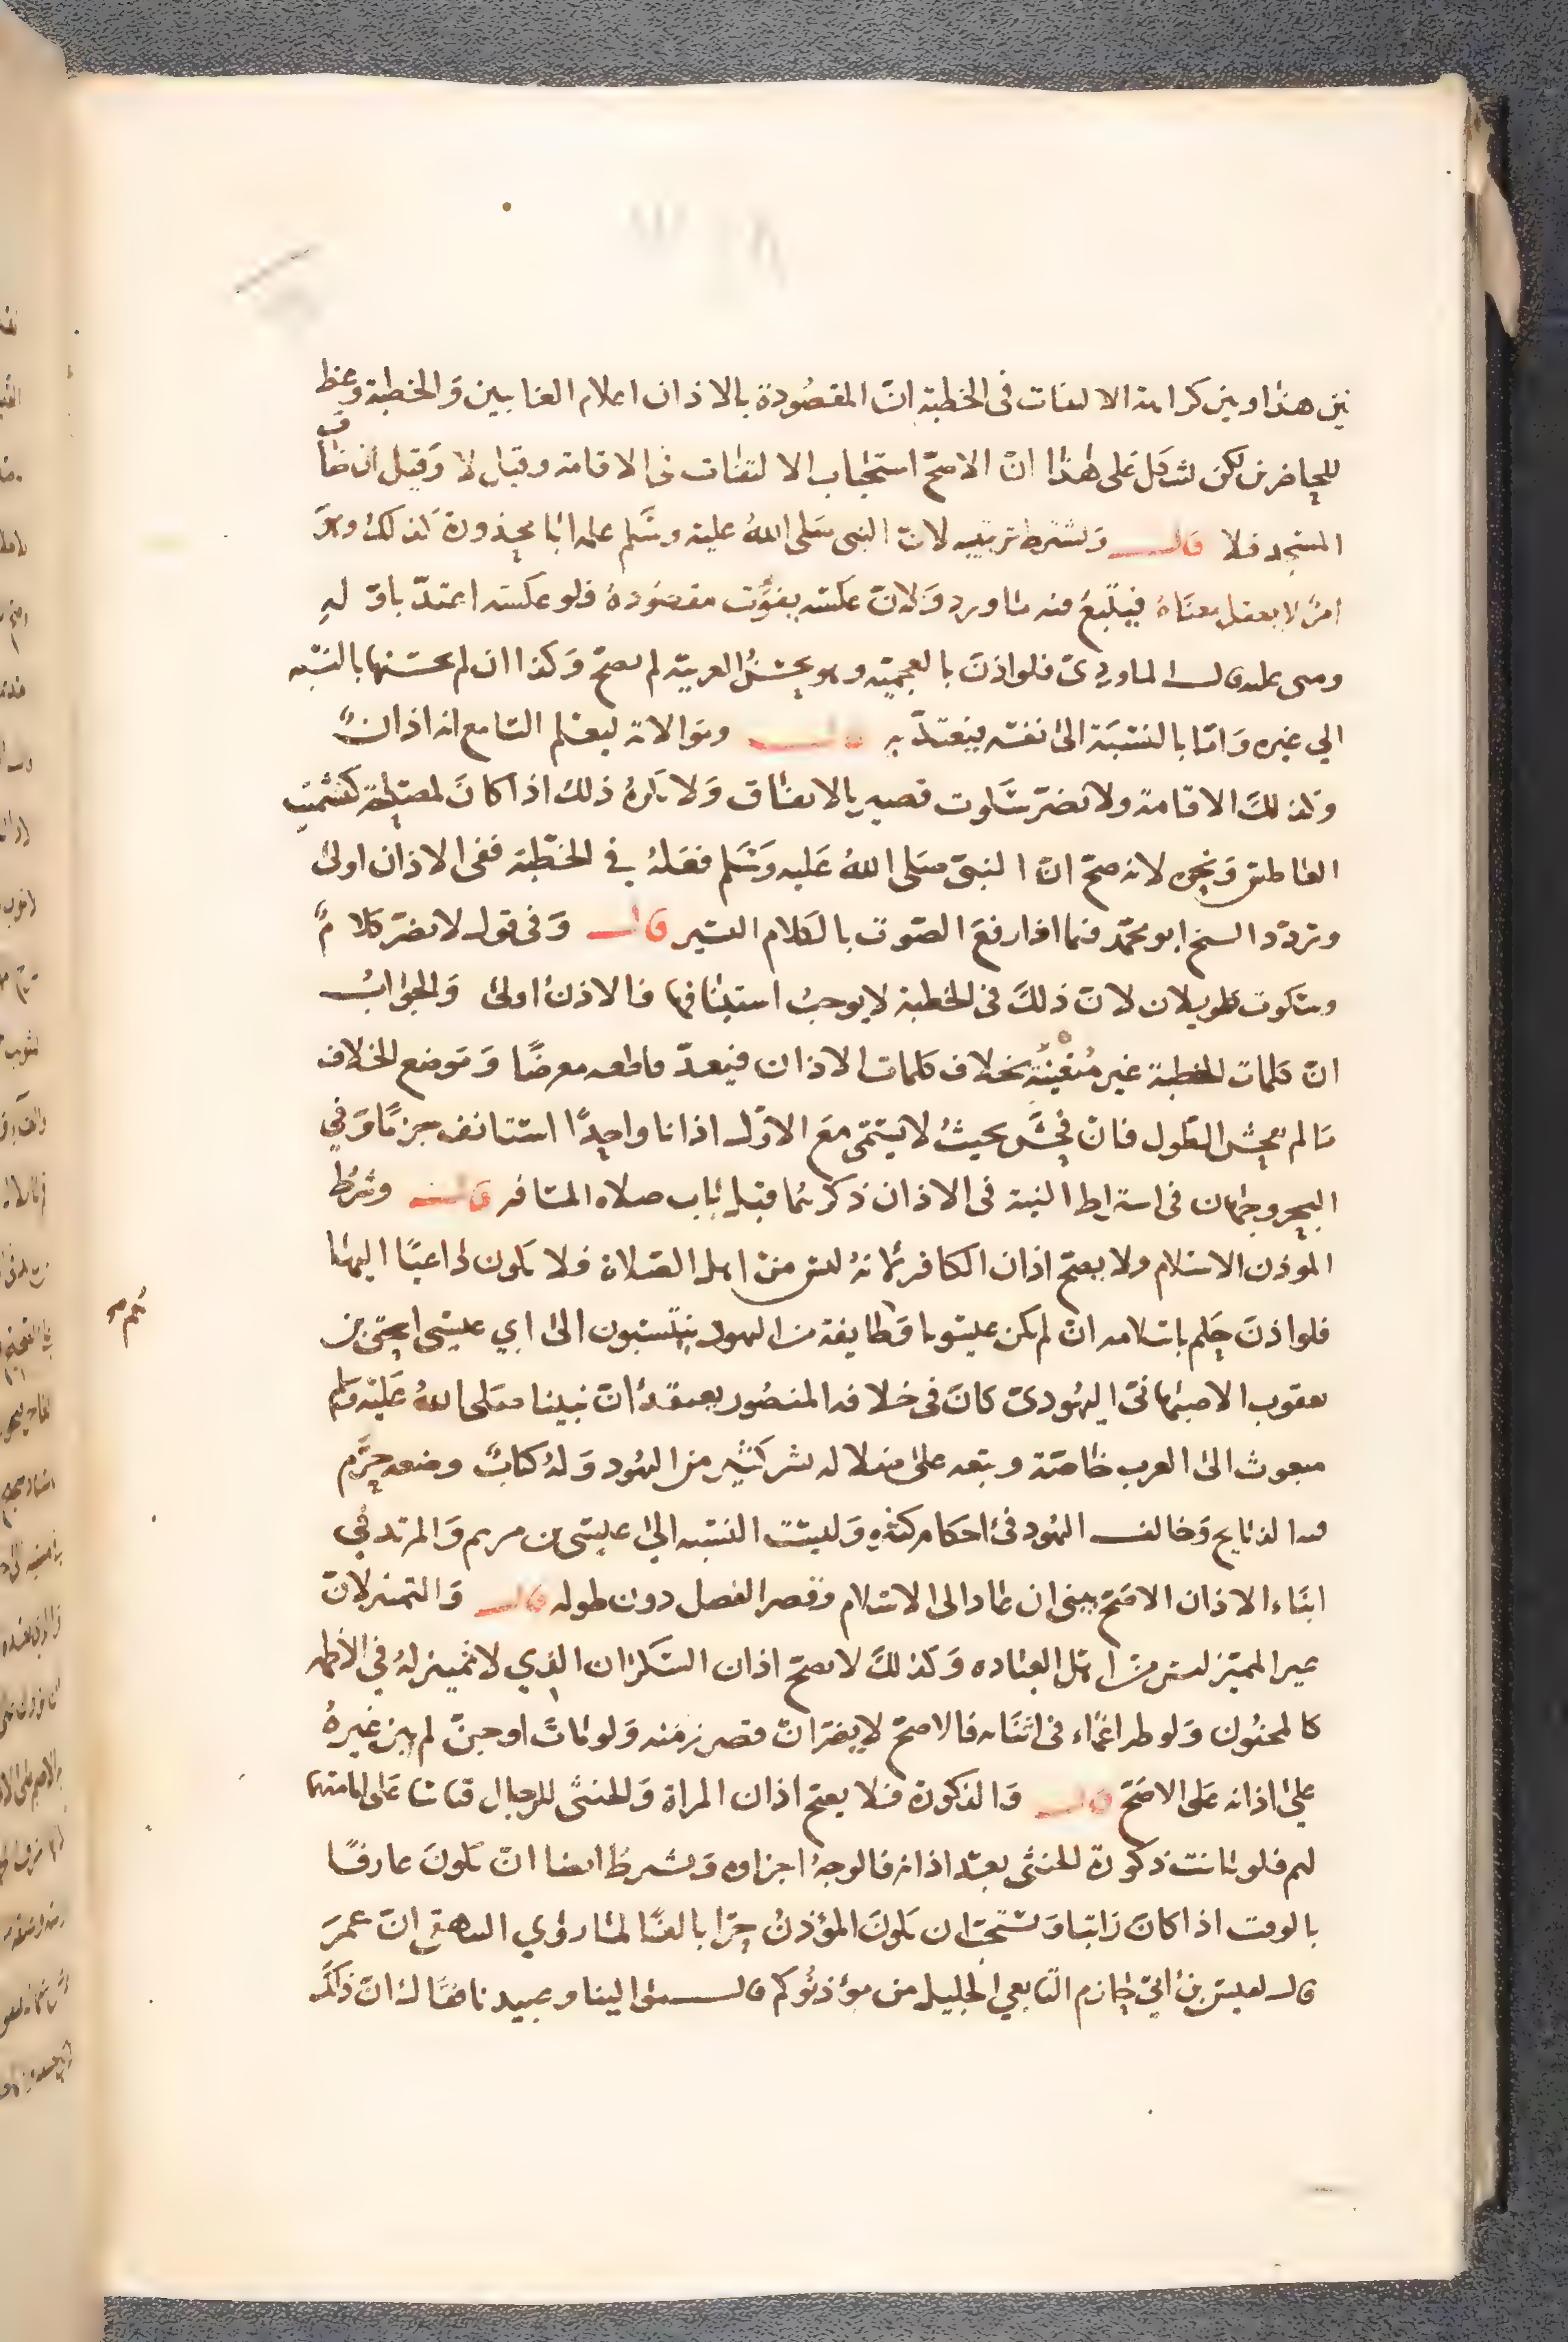 بين هذا وبين كراهة الالتفات في الخطبة انّ المقصُودة بالاذان اعلام الغايبين وَالخطبة وعظ
للحاضرين لكن يشكل على هذا انّ الاصحّ استحباب الالتفات في الاقامة وقيل لا وَقيل ان ضاق
المسجد فلا قال وَيشترط ترتيبه لانّ النبي صَلى اللهُ عليه وسَّلم علمه ابا محذورة كذلك وهوَ
امرٌ لا يعقل معنَاهُ فيتّبعُ فيه ما ورد وَلانّ عكسه يفوّت مقصُودهُ فلو عكسَه اعتدّ باوّله
وبنى عليه قال الماورديّ فلو اذنَ بالعجميّة وهو يحسنُ العربيّة لم يصحّ وَكذا ان لم يحسنها بالنسبه
الي غيره وَامّا بالنسبَة الىٰ نفسه فيعتدّ به قال وموالاته ليعلم السامع انه اذانٌ
وكذلكَ الاقامة ولا يضرّ سكوت قصير بالاتفاق وَلا يكرهُ ذلكَ اذا كانَ لمصلحة كتشميت
العاطس وَنحوه لانه صحّ انّ النبيّ صَلى اللهُ عَليه وَسَلم فعَلهُ في الخطبة ففي الاذان اولىٰ
وتردّد الشيخ ابو محمّد فيما اذا رفعَ الصّوت بالكلام اليسير قال وَفي قول لا يضرّ كلامٌ
وسَكوت طويلان لانّ ذلكَ في الخطبة لا يوجبُ استينافها فالاذانُ اولىٰ وَالجوابُ
انّ كلمات الخطبة غير مُتعينة بخلاف كلمات الاذان فيعدّ قاطعه معرضًا وَموضع الخلاف
ما لم يفحش الطول فانّ فحش بحيثُ لا يسمّى معَ الاوّل اذانا واحدًا استانف جزمًا وَفي
البحر وجهان في اشتراط النية في الاذان ذكرهما قبل باب صلاه المسَافر قال وشرط
الموذن الاسلام ولا يصحّ اذان الكافر لانهُ ليس منْ اهل الصّلاة فلا يكون داعيًا اليها
فلو اذنَ حكم باسلامه انّ لم يكن عيسويا وَطايفة من اليهود ينتسبون الىٰ ابي عيسى اسحق بن
يعقوب الاصبهانيّ اليهوديّ كانَ في خلافه المنصُور يعتقدُ انّ نبينا صَلى اللهُ عَليه وَسلم
مبعوث الىٰ العرب خاصّة وتبعه علىٰ ضلاله بشر كثير من اليهود وَلهُ كتابٌ وضعه حرَّم
فيه الذبايح وَخالف اليهود في احكام كثيره وَليست النسبه الىٰ عيسى بن مريم وَالمرتد في
اثنَاء الاذان الاصَح يبني ان عاد الى الاسلام وَقصر الفصل دون طوله قال وَالتمييز لانّ
غير المميّز ليس من اهل العباده وَكذلكَ لا يصحّ اذان السَكران الذي لا تمييز لهُ في الاظهر
كالمجنُون وَلو طرا اغماء في اثنَائه فالاصحّ لا يضرّ انّ قصر زمَنه وَلو ماتَ او جنّ لم يبن غيرهُ
علىٰ اذانه عَلى الاصَحّ قال وَالذكورة فلا يصحّ اذان المراة وَالخنثى للرجال قياسا عَلى امامتهما
لهم فلو بانت ذكورة الخنثى بعدَ اذانه فالوجهُ اجزاوه وَيشرط ايضا انّ يكونَ عارفًا
بالوقت اذا كانَ راتبا وَيستحبّ ان يكونَ المؤذنُ حرّا بالغًا لما رؤي البيهقي انّ عمرَ
قال لقيس بن ابي حازم التابعي الجليل من مؤذنُوكم قال موالينا وعبيدنا فقَال انّ ذَلكَ